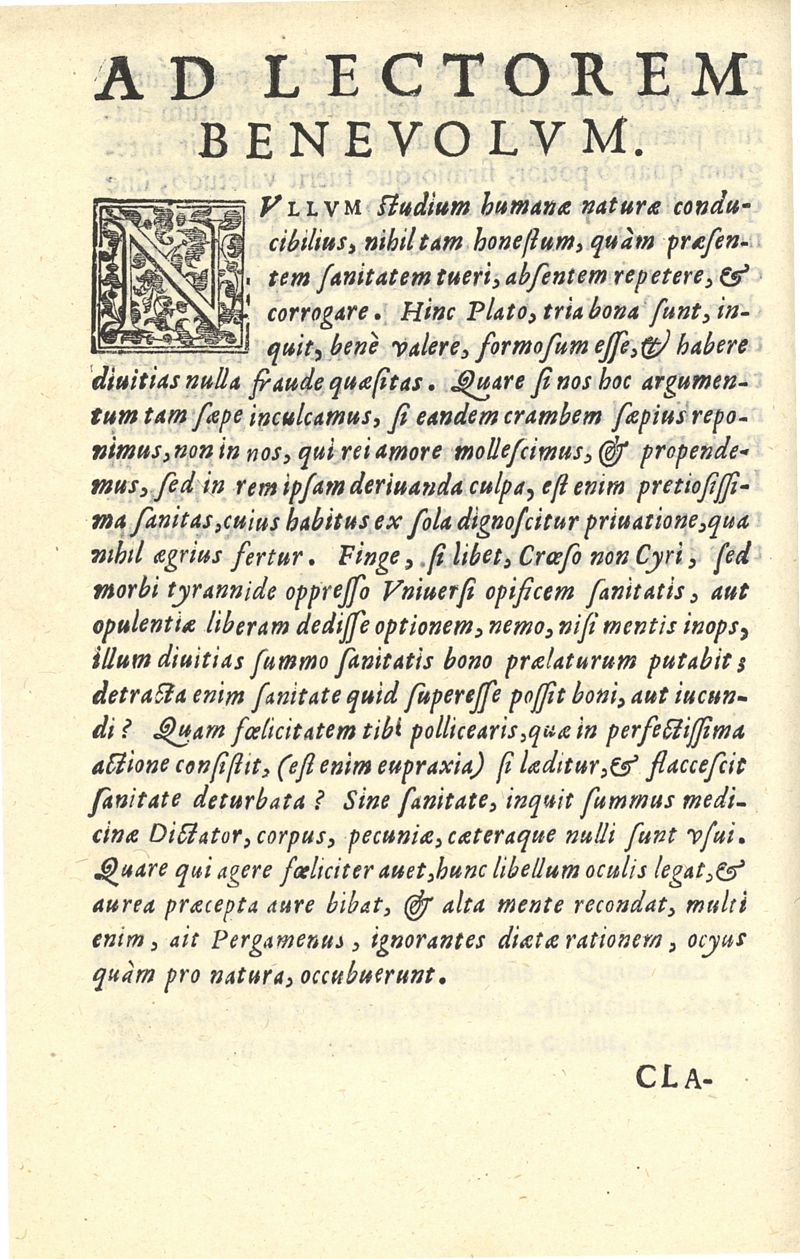 AD LECTOREM
BENEVOLVM.
NVLLVM ſtudium humanæ naturæ condu-
cibilius, nihil tam honeſtum, quàm præſen-
tem ſanitatem tueri, abſentem repetere, &
corrogare. Hinc Plato, tria bona ſunt, in-
quit, benè valere, formoſum eſſe, & habere
diuitias nulla fraude quæſitas. Quare ſi nos hoc argumen-
tum tam ſæpe inculcamus, ſi eandem crambem ſæpius repo-
nimus, non in nos, qui rei amore molleſcimus, & propende-
mus, ſed in rem ipſam deriuanda culpa, eſt enim pretioſiſſi-
ma ſanitas, cuius habitus ex ſola dignoſcitur priuatione, qua
nihil ægrius fertur. Finge, ſi libet, Crœſo non Cyri, ſed
morbi tyrannide oppreſſo Vniuerſi opificem ſanitatis, aut
opulentiæ liberam dediſſe optionem, nemo, niſi mentis inops,
illum diuitias ſummo ſanitatis bono prælaturum putabit;
detracta enim ſanitate quid ſupereſſe poſſit boni, aut iucun-
di? Quam fœlicitatem tibi pollicearis, quæ in perfectiſſima
actione conſiſtit, (eſt enim eupraxia) ſi læditur, & flacceſcit
ſanitate deturbata? Sine ſanitate, inquit ſummus medi-
cinæ Dictator, corpus, pecuniæ, cæteraque nulli ſunt vſui.
Quare qui agere fœliciter auet, hunc libellum oculis legat, &
aurea præcepta aure bibat, & alta mente recondat, multi
enim, ait Pergamenus, ignorantes diætæ rationem, ocyus
quàm pro natura, occubuerunt.
CLA-